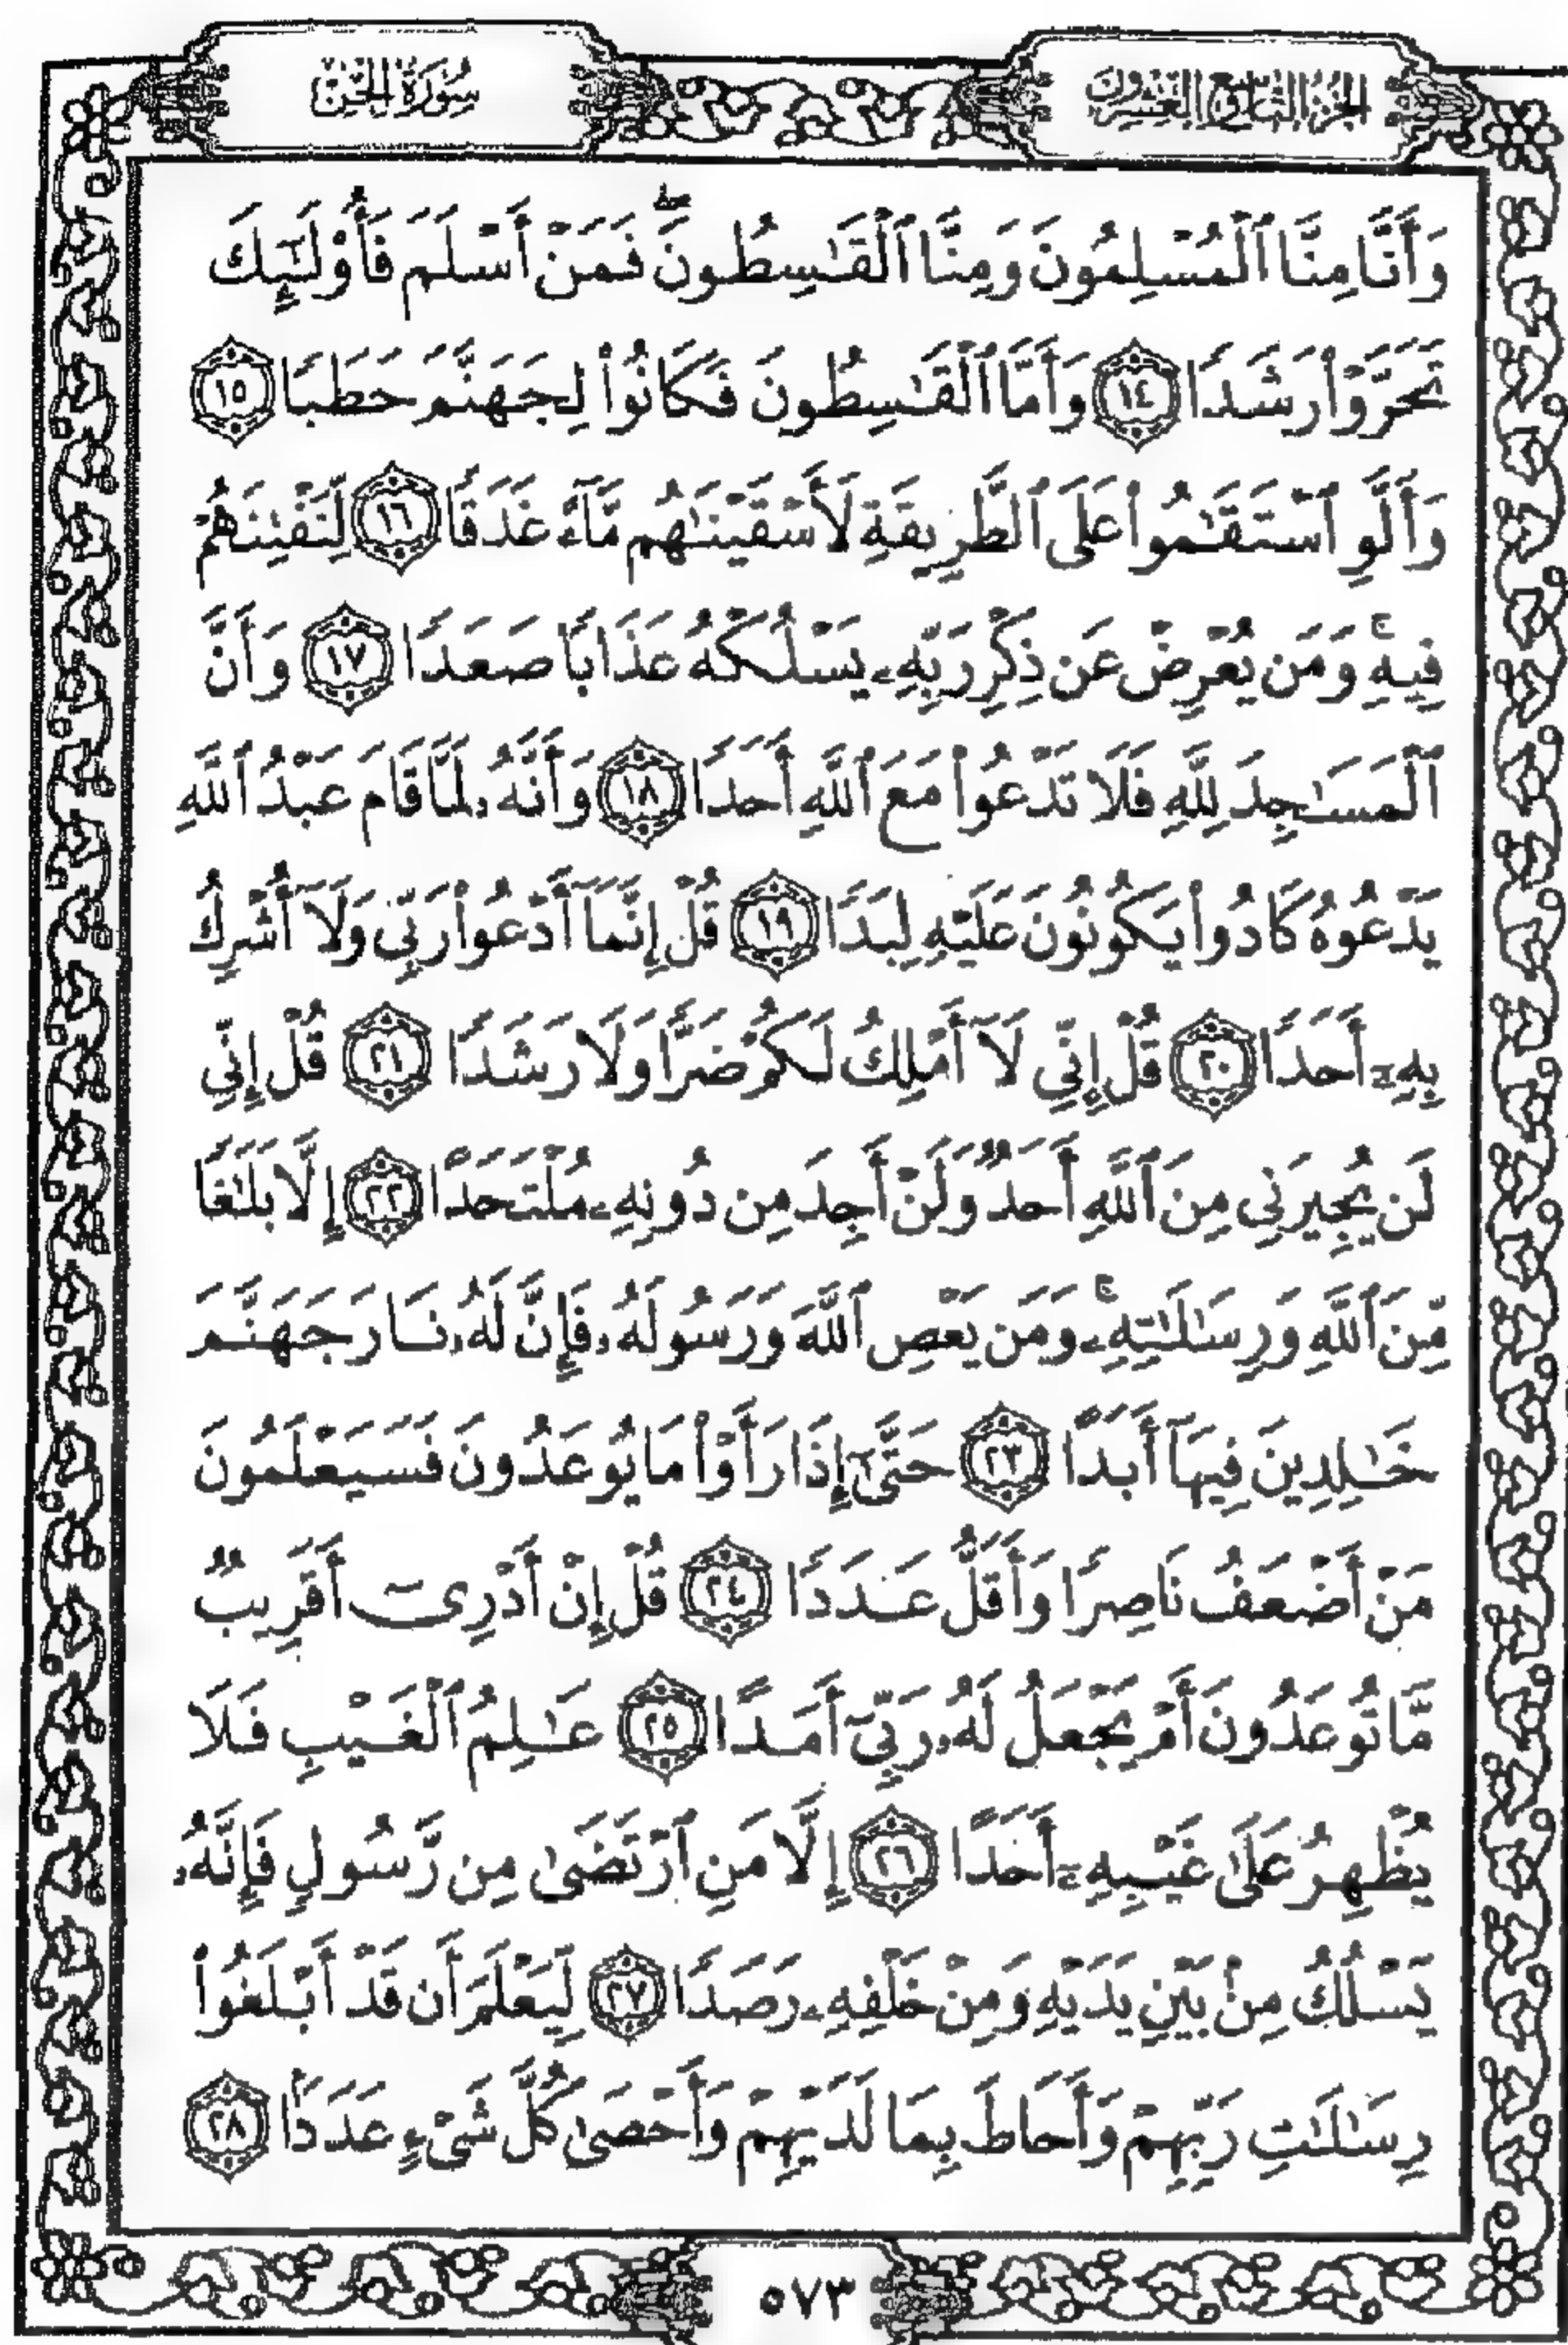 الجزء التاسع والعشرون
سورة الجن
وَأَنَّا مِنَّا ٱلْمُسْلِمُونَ وَمِنَّا ٱلْقَـٰسِطُونَ ۖ فَمَنْ أَسْلَمَ فَأُو۟لَـٰٓئِكَ
تَحَرَّوْا۟ رَشَدًا ١٤ وَأَمَّا ٱلْقَـٰسِطُونَ فَكَانُوا۟ لِجَهَنَّمَ حَطَبًا ١٥
وَأَلَّوِ ٱسْتَقَـٰمُوا۟ عَلَى ٱلطَّرِيقَةِ لَأَسْقَيْنَـٰهُم مَّآءً غَدَقًا ١٦ لِّنَفْتِنَهُمْ
فِيهِ ۚ وَمَن يُعْرِضْ عَن ذِكْرِ رَبِّهِۦ يَسْلُكْهُ عَذَابًا صَعَدًا ١٧ وَأَنَّ
ٱلْمَسَـٰجِدَ لِلَّهِ فَلَا تَدْعُوا۟ مَعَ ٱللَّهِ أَحَدًا ١٨ وَأَنَّهُۥ لَمَّا قَامَ عَبْدُ ٱللَّهِ
يَدْعُوهُ كَادُوا۟ يَكُونُونَ عَلَيْهِ لِبَدًا ١٩ قُلْ إِنَّمَآ أَدْعُوا۟ رَبِّى وَلَآ أُشْرِكُ
بِهِۦٓ أَحَدًا ٢٠ قُلْ إِنِّى لَآ أَمْلِكُ لَكُمْ ضَرًّا وَلَا رَشَدًا ٢١ قُلْ إِنِّى
لَن يُجِيرَنِى مِنَ ٱللَّهِ أَحَدٌ وَلَنْ أَجِدَ مِن دُونِهِۦ مُلْتَحَدًا ٢٢ إِلَّا بَلَـٰغًا
مِّنَ ٱللَّهِ وَرِسَـٰلَـٰتِهِۦ ۚ وَمَن يَعْصِ ٱللَّهَ وَرَسُولَهُۥ فَإِنَّ لَهُۥ نَارَ جَهَنَّمَ
خَـٰلِدِينَ فِيهَآ أَبَدًا ٢٣ حَتَّىٰٓ إِذَا رَأَوْا۟ مَا يُوعَدُونَ فَسَيَعْلَمُونَ
مَنْ أَضْعَفُ نَاصِرًا وَأَقَلُّ عَدَدًا ٢٤ قُلْ إِنْ أَدْرِىٓ أَقَرِيبٌ
مَّا تُوعَدُونَ أَمْ يَجْعَلُ لَهُۥ رَبِّىٓ أَمَدًا ٢٥ عَـٰلِمُ ٱلْغَيْبِ فَلَا
يُظْهِرُ عَلَىٰ غَيْبِهِۦٓ أَحَدًا ٢٦ إِلَّا مَنِ ٱرْتَضَىٰ مِن رَّسُولٍ فَإِنَّهُۥ
يَسْلُكُ مِنۢ بَيْنِ يَدَيْهِ وَمِنْ خَلْفِهِۦ رَصَدًا ٢٧ لِّيَعْلَمَ أَن قَدْ أَبْلَغُوا۟
رِسَـٰلَـٰتِ رَبِّهِمْ وَأَحَاطَ بِمَا لَدَيْهِمْ وَأَحْصَىٰ كُلَّ شَىْءٍ عَدَدًۢا ٢٨
٥٧٣